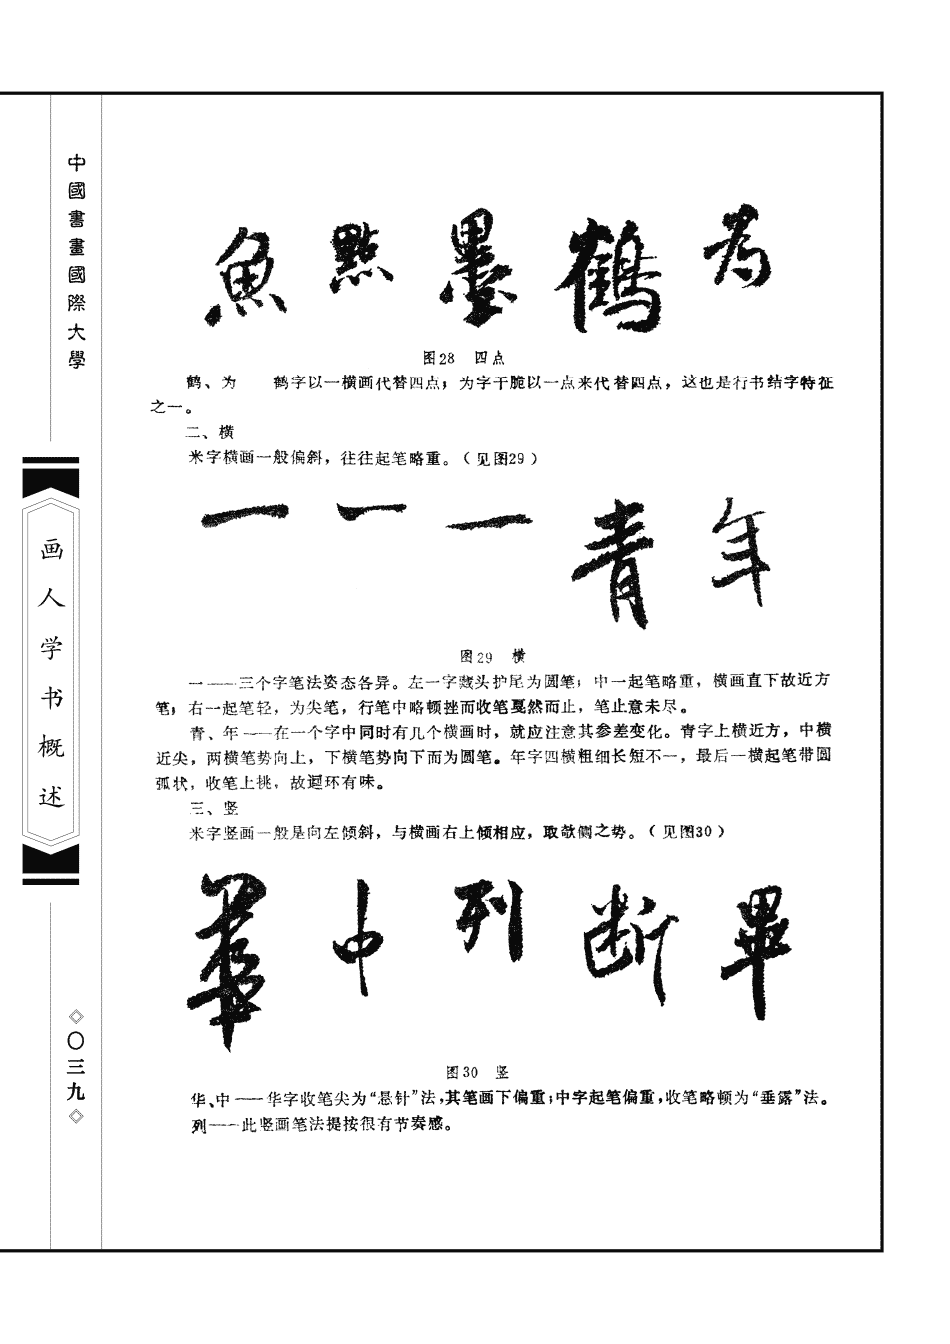 中國書畫國際大學
画人学书概述
〇三九
魚 點 墨 鶴 为
图28 四点
鹤、为 鹤字以一横画代替四点；为字干脆以一点来代替四点，这也是行书结字特征
之一。
二、横
米字横画一般偏斜，往往起笔略重。（见图29）
一 一 一 青 年
图29 横
一——三个字笔法姿态各异。左一字藏头护尾为圆笔；中一起笔略重，横画直下故近方
笔；右一起笔轻，为尖笔，行笔中略顿挫而收笔戛然而止，笔止意未尽。
青、年——在一个字中同时有几个横画时，就应注意其参差变化。青字上横近方，中横
近尖，两横笔势向上，下横笔势向下而为圆笔。年字四横粗细长短不一，最后一横起笔带圆
弧状，收笔上挑，故迴环有味。
三、竖
米字竖画一般是向左倾斜，与横画右上倾相应，取欹侧之势。（见图30）
華 中 列 断 畢
图30 竖
华、中——华字收笔尖为“悬针”法，其笔画下偏重；中字起笔偏重，收笔略顿为“垂露”法。
列——此竖画笔法提按很有节奏感。